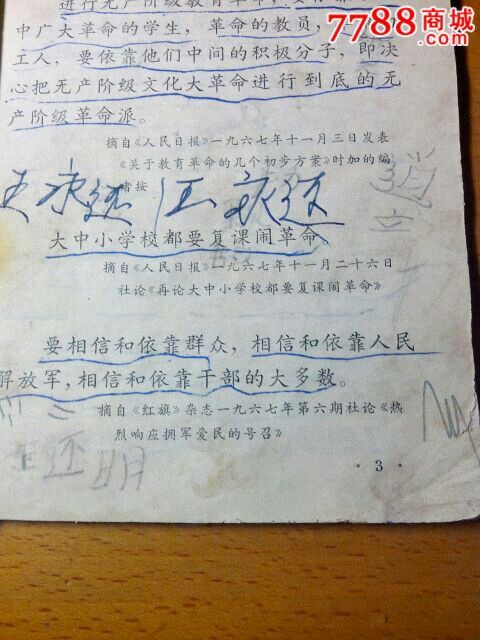 7788商城
.com
进行无产阶级教育革命，要依靠
中广大革命的学生，革命的教员，
工人，要依靠他们中间的积极分子，即决
心把无产阶级文化大革命进行到底的无
产阶级革命派。
摘自《人民日报》一九六七年十一月三日发表
《关于教育革命的几个初步方案》时加的编
者按
大中小学校都要复课闹革命。
摘自《人民日报》一九六七年十一月二十六日
社论《再论大中小学校都要复课闹革命》
要相信和依靠群众，相信和依靠人民
解放军，相信和依靠干部的大多数。
摘自《红旗》杂志一九六七年第六期社论《热
烈响应拥军爱民的号召》
· 3 ·